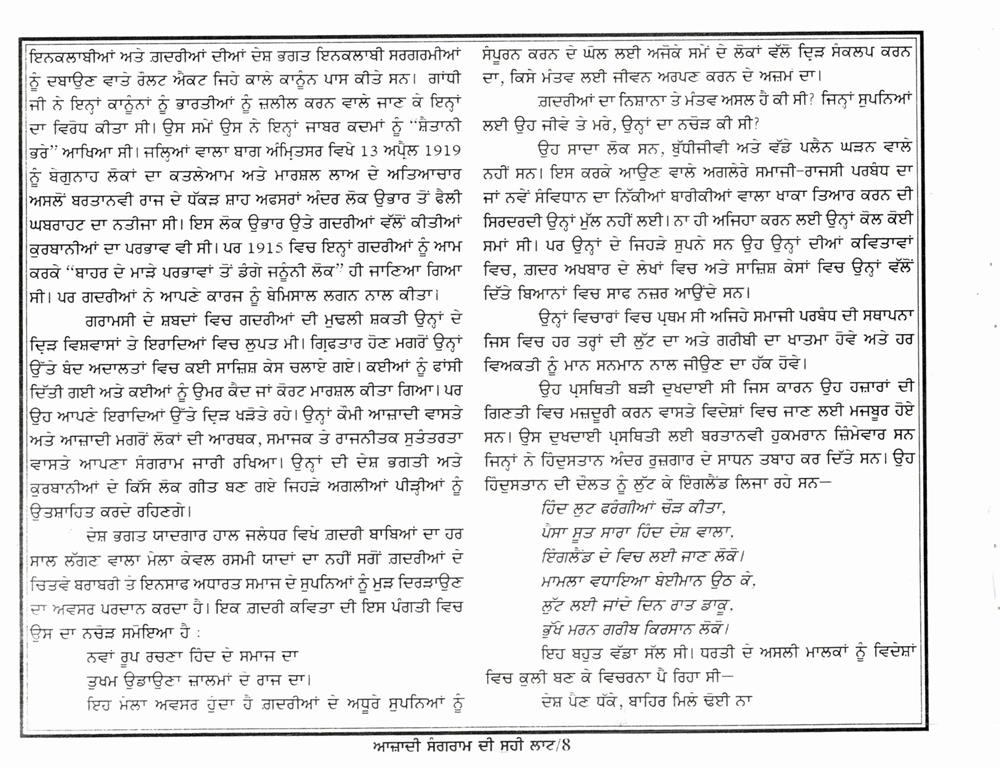 ਇਨਕਲਾਬੀਆਂ ਅਤੇ ਗ਼ਦਰੀਆਂ ਦੀਆਂ ਦੇਸ਼ ਭਗਤ ਇਨਕਲਾਬੀ ਸਰਗਰਮੀਆਂ
ਨੂੰ ਦਬਾਉਣ ਵਾਤੇ ਰੌਲਟ ਐਕਟ ਜਿਹੇ ਕਾਲੇ ਕਾਨੂੰਨ ਪਾਸ ਕੀਤੇ ਸਨ। ਗਾਂਧੀ
ਜੀ ਨੇ ਇਨ੍ਹਾਂ ਕਾਨੂੰਨਾਂ ਨੂੰ ਭਾਰਤੀਆਂ ਨੂੰ ਜ਼ਲੀਲ ਕਰਨ ਵਾਲੇ ਜਾਣ ਕੇ ਇਨ੍ਹਾਂ
ਦਾ ਵਿਰੋਧ ਕੀਤਾ ਸੀ। ਉਸ ਸਮੇਂ ਉਸ ਨੇ ਇਨ੍ਹਾਂ ਜਾਬਰ ਕਦਮਾਂ ਨੂੰ “ਸ਼ੈਤਾਨੀ
ਭਰੇ” ਆਖਿਆ ਸੀ। ਜਲ੍ਹਿਆਂ ਵਾਲਾ ਬਾਗ ਅੰਮ੍ਰਿਤਸਰ ਵਿਖੇ 13 ਅਪ੍ਰੈਲ 1919
ਨੂੰ ਬੇਗੁਨਾਹ ਲੋਕਾਂ ਦਾ ਕਤਲੇਆਮ ਅਤੇ ਮਾਰਸ਼ਲ ਲਾਅ ਦੇ ਅਤਿਆਚਾਰ
ਅਸਲੋਂ ਬਰਤਾਨਵੀ ਰਾਜ ਦੇ ਧੱਕੜ ਸ਼ਾਹ ਅਫਸਰਾਂ ਅੰਦਰ ਲੋਕ ਉਭਾਰ ਤੋਂ ਫੈਲੀ
ਘਬਰਾਹਟ ਦਾ ਨਤੀਜਾ ਸੀ। ਇਸ ਲੋਕ ਉਭਾਰ ਉਤੇ ਗਦਰੀਆਂ ਵੱਲੋਂ ਕੀਤੀਆਂ
ਕੁਰਬਾਨੀਆਂ ਦਾ ਪਰਭਾਵ ਵੀ ਸੀ। ਪਰ 1915 ਵਿਚ ਇਨ੍ਹਾਂ ਗਦਰੀਆਂ ਨੂੰ ਆਮ
ਕਰਕੇ “ਬਾਹਰ ਦੇ ਮਾੜੇ ਪਰਭਾਵਾਂ ਤੋਂ ਡੰਗੇ ਜਨੂੰਨੀ ਲੋਕ” ਹੀ ਜਾਣਿਆ ਗਿਆ
ਸੀ। ਪਰ ਗਦਰੀਆਂ ਨੇ ਆਪਣੇ ਕਾਰਜ ਨੂੰ ਬੇਮਿਸਾਲ ਲਗਨ ਨਾਲ ਕੀਤਾ।
ਗਰਾਮਸੀ ਦੇ ਸ਼ਬਦਾਂ ਵਿਚ ਗਦਰੀਆਂ ਦੀ ਮੁਢਲੀ ਸ਼ਕਤੀ ਉਨ੍ਹਾਂ ਦੇ
ਦ੍ਰਿੜ ਵਿਸ਼ਵਾਸਾਂ ਤੇ ਇਰਾਦਿਆਂ ਵਿਚ ਲੁਪਤ ਮੀ। ਗ੍ਰਿਫਤਾਰ ਹੋਣ ਮਗਰੋਂ ਉਨ੍ਹਾਂ
ਉੱਤੇ ਬੰਦ ਅਦਾਲਤਾਂ ਵਿਚ ਕਈ ਸਾਜ਼ਿਸ਼ ਕੇਸ ਚਲਾਏ ਗਏ। ਕਈਆਂ ਨੂੰ ਫਾਂਸੀ
ਦਿੱਤੀ ਗਈ ਅਤੇ ਕਈਆਂ ਨੂੰ ਉਮਰ ਕੈਦ ਜਾਂ ਕੋਰਟ ਮਾਰਸ਼ਲ ਕੀਤਾ ਗਿਆ। ਪਰ
ਉਹ ਆਪਣੇ ਇਰਾਦਿਆਂ ਉੱਤੇ ਦ੍ਰਿੜ ਖੜੋਤੇ ਰਹੇ। ਉਨ੍ਹਾਂ ਕੌਮੀ ਆਜ਼ਾਦੀ ਵਾਸਤੇ
ਅਤੇ ਆਜ਼ਾਦੀ ਮਗਰੋਂ ਲੋਕਾਂ ਦੀ ਆਰਥਕ, ਸਮਾਜਕ ਤੇ ਰਾਜਨੀਤਕ ਸੁਤੰਤਰਤਾ
ਵਾਸਤੇ ਆਪਣਾ ਸੰਗਰਾਮ ਜਾਰੀ ਰਖਿਆ। ਉਨ੍ਹਾਂ ਦੀ ਦੇਸ਼ ਭਗਤੀ ਅਤੇ
ਕੁਰਬਾਨੀਆਂ ਦੇ ਕਿੱਸੇ ਲੋਕ ਗੀਤ ਬਣ ਗਏ ਜਿਹੜੇ ਅਗਲੀਆਂ ਪੀੜ੍ਹੀਆਂ ਨੂੰ
ਉਤਸ਼ਾਹਿਤ ਕਰਦੇ ਰਹਿਣਗੇ।
ਦੇਸ਼ ਭਗਤ ਯਾਦਗਾਰ ਹਾਲ ਜਲੰਧਰ ਵਿਖੇ ਗ਼ਦਰੀ ਬਾਬਿਆਂ ਦਾ ਹਰ
ਸਾਲ ਲੱਗਣ ਵਾਲਾ ਮੇਲਾ ਕੇਵਲ ਰਸਮੀ ਯਾਦਾਂ ਦਾ ਨਹੀਂ ਸਗੋਂ ਗ਼ਦਰੀਆਂ ਦੇ
ਚਿਤਵੇ ਬਰਾਬਰੀ ਤੇ ਇਨਸਾਫ ਅਧਾਰਤ ਸਮਾਜ ਦੇ ਸੁਪਨਿਆਂ ਨੂੰ ਮੁੜ ਦਿਰੜਾਉਣ
ਦਾ ਅਵਸਰ ਪਰਦਾਨ ਕਰਦਾ ਹੈ। ਇਕ ਗ਼ਦਰੀ ਕਵਿਤਾ ਦੀ ਇਸ ਪੰਗਤੀ ਵਿਚ
ਉਸ ਦਾ ਨਚੋੜ ਸਮੋਇਆ ਹੈ :
ਨਵਾਂ ਰੂਪ ਰਚਣਾ ਹਿੰਦ ਦੇ ਸਮਾਜ ਦਾ
ਤੁਖਮ ਉਡਾਉਣਾ ਜ਼ਾਲਮਾਂ ਦੇ ਰਾਜ ਦਾ।
ਇਹ ਮੇਲਾ ਅਵਸਰ ਹੁੰਦਾ ਹੈ ਗ਼ਦਰੀਆਂ ਦੇ ਅਧੂਰੇ ਸੁਪਨਿਆਂ ਨੂੰ
ਸੰਪੂਰਨ ਕਰਨ ਦੇ ਘੋਲ ਲਈ ਅਜੋਕੇ ਸਮੇਂ ਦੇ ਲੋਕਾਂ ਵੱਲੋਂ ਦ੍ਰਿੜ ਸੰਕਲਪ ਕਰਨ
ਦਾ, ਕਿਸੇ ਮੰਤਵ ਲਈ ਜੀਵਨ ਅਰਪਣ ਕਰਨ ਦੇ ਅਜ਼ਮ ਦਾ।
ਗ਼ਦਰੀਆਂ ਦਾ ਨਿਸ਼ਾਨਾ ਤੇ ਮੰਤਵ ਅਸਲ ਹੈ ਕੀ ਸੀ? ਜਿਨ੍ਹਾਂ ਸੁਪਨਿਆਂ
ਲਈ ਉਹ ਜੀਵੇ ਤੇ ਮਰੇ, ਉਨ੍ਹਾਂ ਦਾ ਨਚੋੜ ਕੀ ਸੀ?
ਉਹ ਸਾਦਾ ਲੋਕ ਸਨ, ਬੁੱਧੀਜੀਵੀ ਅਤੇ ਵੱਡੇ ਪਲੈਨ ਘੜਨ ਵਾਲੇ
ਨਹੀਂ ਸਨ। ਇਸ ਕਰਕੇ ਆਉਣ ਵਾਲੇ ਅਗਲੇਰੇ ਸਮਾਜੀ-ਰਾਜਸੀ ਪਰਬੰਧ ਦਾ
ਜਾਂ ਨਵੇਂ ਸੰਵਿਧਾਨ ਦਾ ਨਿੱਕੀਆਂ ਬਾਰੀਕੀਆਂ ਵਾਲਾ ਖਾਕਾ ਤਿਆਰ ਕਰਨ ਦੀ
ਸਿਰਦਰਦੀ ਉਨ੍ਹਾਂ ਮੁੱਲ ਨਹੀਂ ਲਈ। ਨਾ ਹੀ ਅਜਿਹਾ ਕਰਨ ਲਈ ਉਨ੍ਹਾਂ ਕੋਲ ਕੋਈ
ਸਮਾਂ ਸੀ। ਪਰ ਉਨ੍ਹਾਂ ਦੇ ਜਿਹੜੇ ਸੁਪਨੇ ਸਨ ਉਹ ਉਨ੍ਹਾਂ ਦੀਆਂ ਕਵਿਤਾਵਾਂ
ਵਿਚ, ਗ਼ਦਰ ਅਖਬਾਰ ਦੇ ਲੇਖਾਂ ਵਿਚ ਅਤੇ ਸਾਜ਼ਿਸ਼ ਕੇਸਾਂ ਵਿਚ ਉਨ੍ਹਾਂ ਵੱਲੋਂ
ਦਿੱਤੇ ਬਿਆਨਾਂ ਵਿਚ ਸਾਫ ਨਜ਼ਰ ਆਉਂਦੇ ਸਨ।
ਉਨ੍ਹਾਂ ਵਿਚਾਰਾਂ ਵਿਚ ਪ੍ਰਥਮ ਸੀ ਅਜਿਹੇ ਸਮਾਜੀ ਪਰਬੰਧ ਦੀ ਸਥਾਪਨਾ
ਜਿਸ ਵਿਚ ਹਰ ਤਰ੍ਹਾਂ ਦੀ ਲੁੱਟ ਦਾ ਅਤੇ ਗਰੀਬੀ ਦਾ ਖਾਤਮਾ ਹੋਵੇ ਅਤੇ ਹਰ
ਵਿਅਕਤੀ ਨੂੰ ਮਾਨ ਸਨਮਾਨ ਨਾਲ ਜੀਉਣ ਦਾ ਹੱਕ ਹੋਵੇ।
ਉਹ ਪ੍ਰਸਥਿਤੀ ਬੜੀ ਦੁਖਦਾਈ ਸੀ ਜਿਸ ਕਾਰਨ ਉਹ ਹਜ਼ਾਰਾਂ ਦੀ
ਗਿਣਤੀ ਵਿਚ ਮਜ਼ਦੂਰੀ ਕਰਨ ਵਾਸਤੇ ਵਿਦੇਸ਼ਾਂ ਵਿਚ ਜਾਣ ਲਈ ਮਜਬੂਰ ਹੋਏ
ਸਨ। ਉਸ ਦੁਖਦਾਈ ਪ੍ਰਸਥਿਤੀ ਲਈ ਬਰਤਾਨਵੀ ਹੁਕਮਰਾਨ ਜ਼ਿੰਮੇਵਾਰ ਸਨ
ਜਿਨ੍ਹਾਂ ਨੇ ਹਿੰਦੁਸਤਾਨ ਅੰਦਰ ਰੁਜ਼ਗਾਰ ਦੇ ਸਾਧਨ ਤਬਾਹ ਕਰ ਦਿੱਤੇ ਸਨ। ਉਹ
ਹਿੰਦੁਸਤਾਨ ਦੀ ਦੌਲਤ ਨੂੰ ਲੁੱਟ ਕੇ ਇੰਗਲੈਂਡ ਲਿਜਾ ਰਹੇ ਸਨ–
ਹਿੰਦ ਲੁਟ ਫਰੰਗੀਆਂ ਚੌੜ ਕੀਤਾ,
ਪੈਸਾ ਸੂਤ ਸਾਰਾ ਹਿੰਦ ਦੇਸ਼ ਵਾਲਾ,
ਇੰਗਲੈਂਡ ਦੇ ਵਿਚ ਲਈ ਜਾਣ ਲੋਕੋ।
ਮਾਮਲਾ ਵਧਾਇਆ ਬੇਈਮਾਨ ਉਠ ਕੇ,
ਲੁੱਟ ਲਈ ਜਾਂਦੇ ਦਿਨ ਰਾਤ ਡਾਕੂ,
ਭੁੱਖੇ ਮਰਨ ਗਰੀਬ ਕਿਰਸਾਨ ਲੋਕੋ।
ਇਹ ਬਹੁਤ ਵੱਡਾ ਸੱਲ ਸੀ। ਧਰਤੀ ਦੇ ਅਸਲੀ ਮਾਲਕਾਂ ਨੂੰ ਵਿਦੇਸ਼ਾਂ
ਵਿਚ ਕੁਲੀ ਬਣ ਕੇ ਵਿਚਰਨਾ ਪੈ ਰਿਹਾ ਸੀ–
ਦੇਸ਼ ਪੈਣ ਧੱਕੇ, ਬਾਹਿਰ ਮਿਲੇ ਢੋਈ ਨਾ
ਆਜ਼ਾਦੀ ਸੰਗਰਾਮ ਦੀ ਸਹੀ ਲਾਟ/8